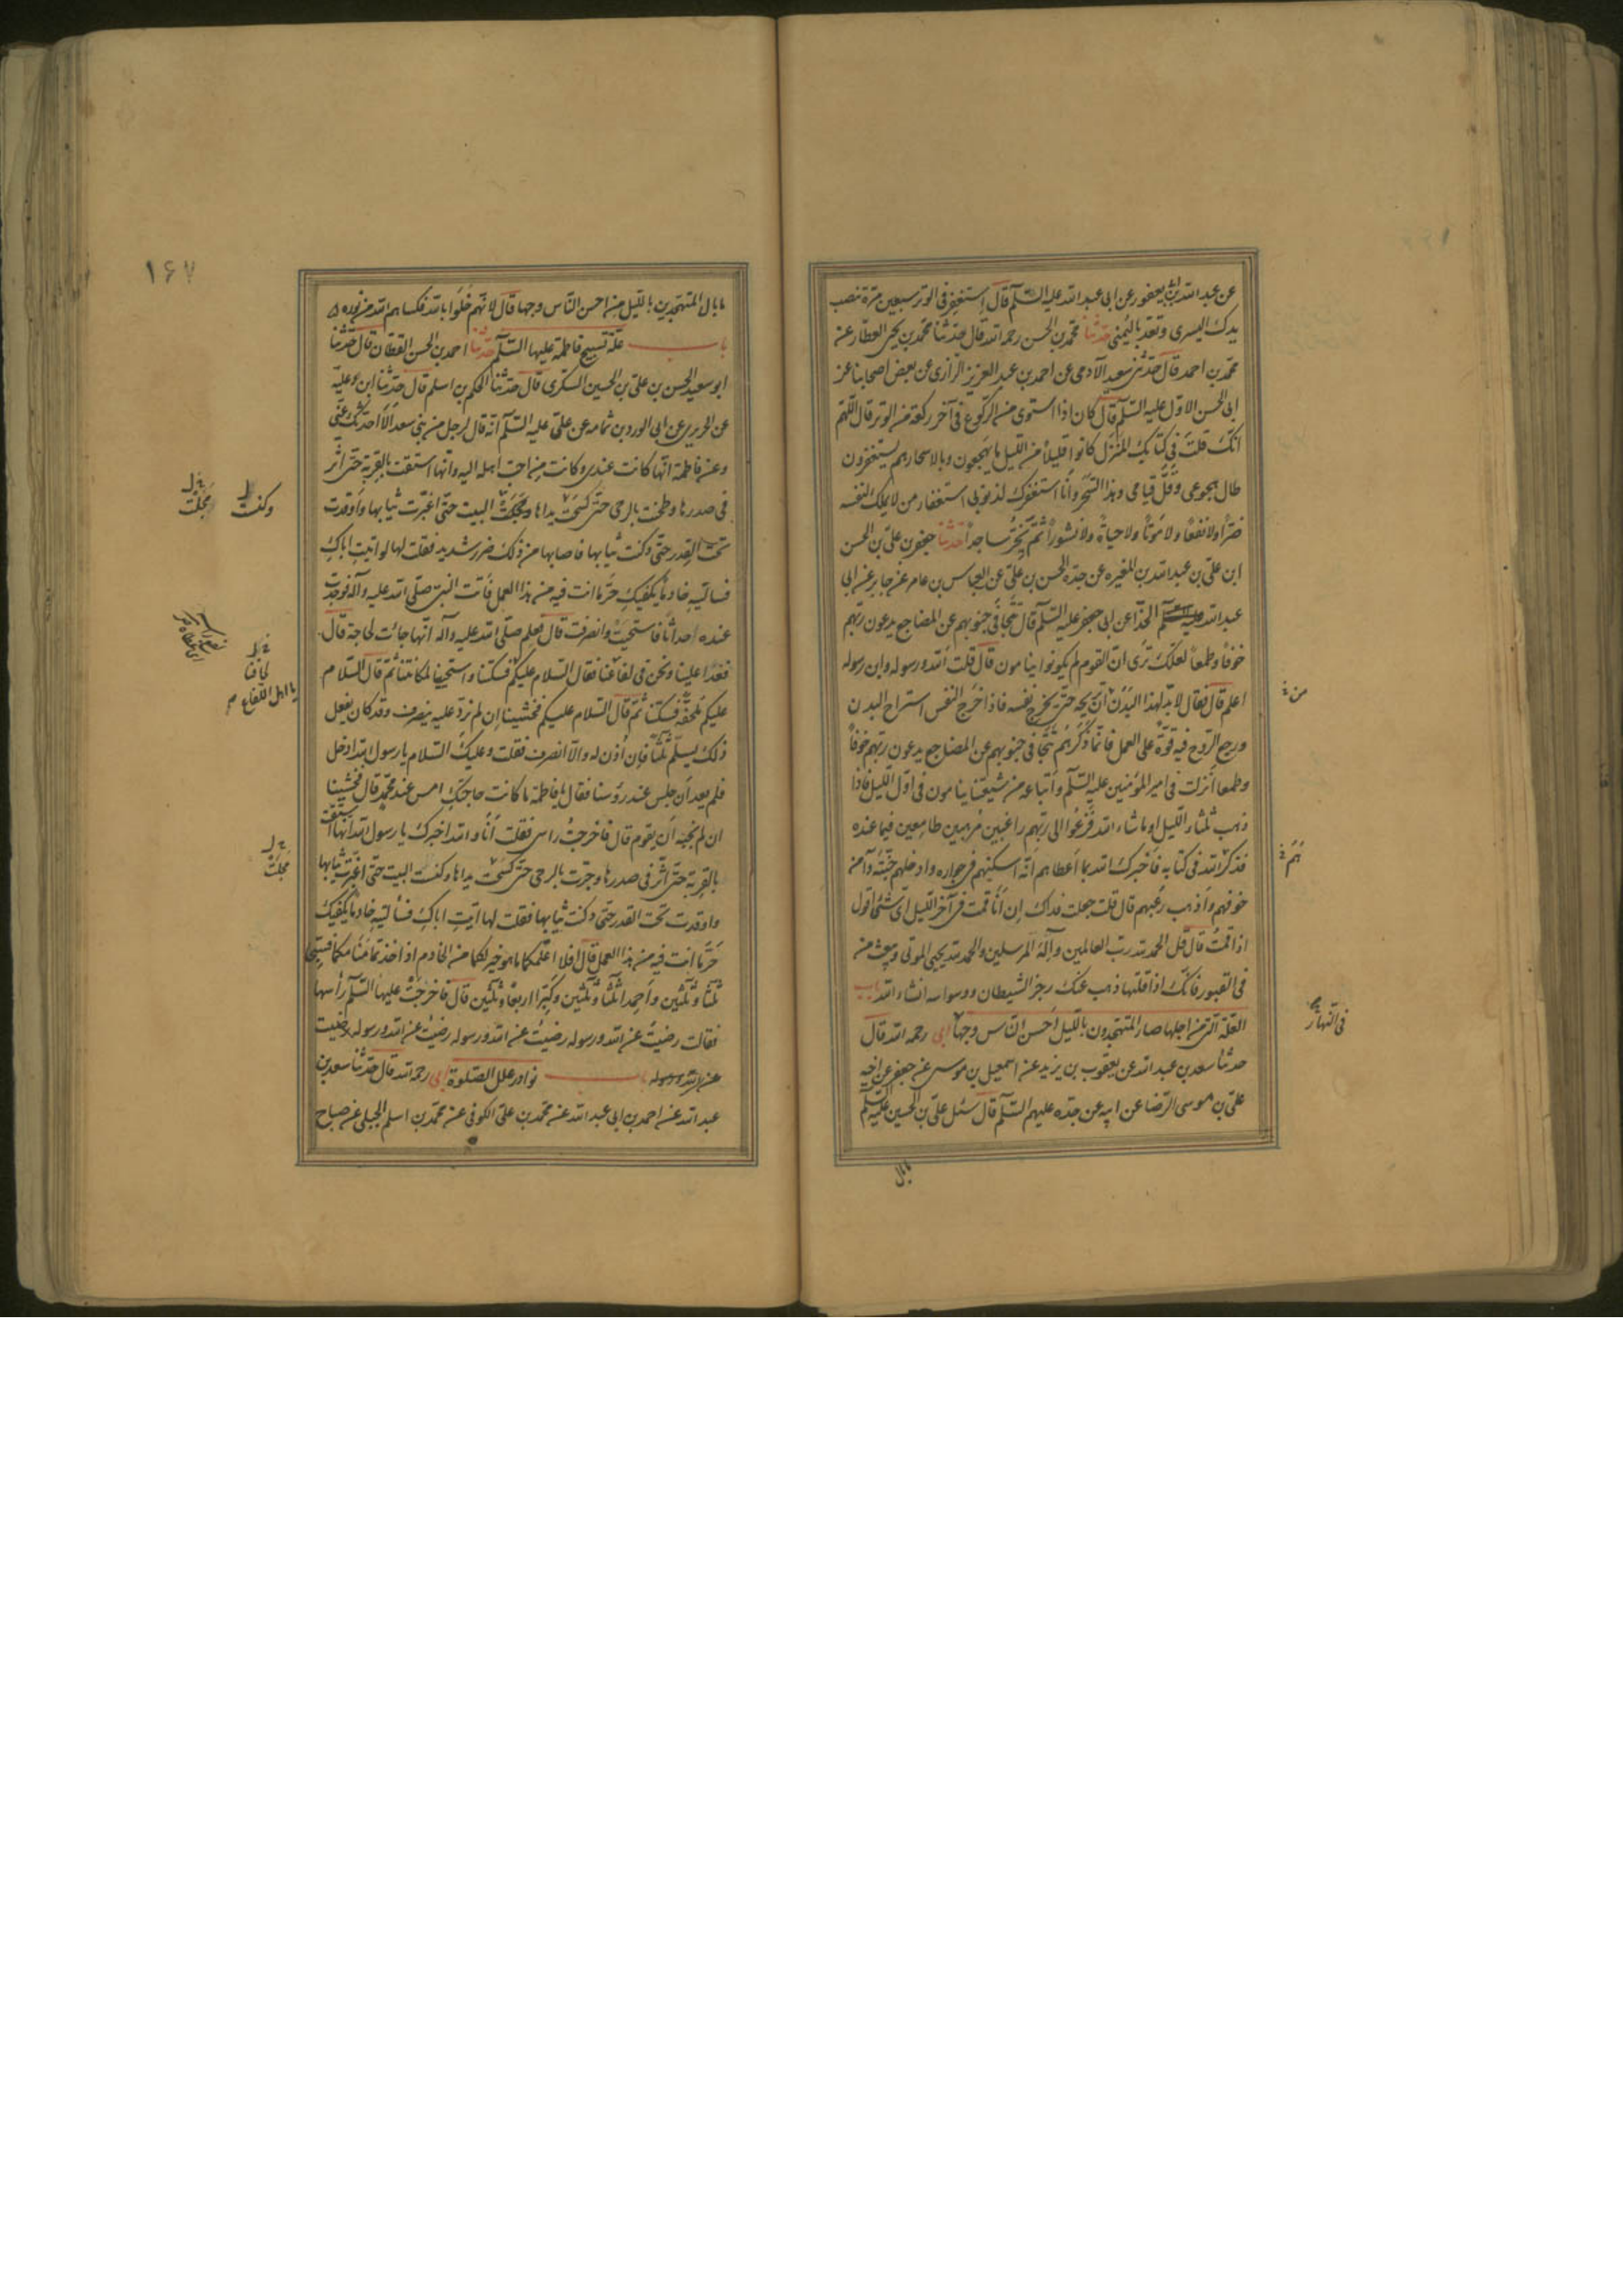 عن عبد الله بن ابى يعفور عن ابى عبد الله عليه السلم قال استغفر فى الوتر سبعين مرة تنصب
يدك اليسرى وتعد باليمنى حدثنا محمد بن الحسن رحمه الله قال حدثنا محمد بن يحيى العطار عن
محمد بن احمد قال حدثنى سعيد الآدمى عن احمد بن عبد العزيز الرازى عن بعض اصحابنا عن
ابى الحسن الاول عليه السلم قال كان اذا استوى من الركوع فى آخر ركعة من الوتر قال اللهم
انك قلت فى كتابك المنزل كانوا قليلا من الليل ما يهجعون وبالاسحار هم يستغفرون
طال هجوعى وقل قيامى وهذا السحر وانا استغفرك لذنوبى استغفار من لا يملك لنفسه
ضرا ولا نفعا ولا موتا ولا حياة ولا نشورا ثم يخر ساجدا حدثنا جعفر بن على بن الحسن
ابن على بن عبد الله بن المغيره عن جده الحسن بن على عن العباس بن عامر عن جابر عن ابى
عبد الله عليه السلم الحذا عن ابى جعفر عليه السلم قال تتجافى جنوبهم عن المضاجع يدعون ربهم
خوفا وطمعا لعلك ترى ان القوم لم يكونوا ينامون قال قلت الله ورسوله وابن رسوله
اعلم قال فقال لا بد لهذا البدن ان تريحه حتى يخرج نفسه فاذا خرج النفس استراح البدن
ورجع الروح فيه قوة على العمل فانما ذكرهم تتجافى جنوبهم عن المضاجع يدعون ربهم خوفا
وطمعا انزلت فى امير المؤمنين عليه السلم واتباعه من شيعتنا ينامون فى اول الليل فاذا
ذهب ثلثا الليل او ما شاء الله فزعوا الى ربهم راغبين مرهبين طامعين فيما عنده
فذكر الله فى كتابه فاخبرك الله بما اعطاهم انه اسكنهم فى جواره وادخلهم جنته وآمن
خوفهم واذهب رعبهم قال قلت جعلت فداك ان انا قمت فى آخر الليل اى شئ اقول
اذا قمت قال قل الحمد لله رب العالمين واله المرسلين والحمد لله يحيى الموتى ويبعث من
فى القبور فانك اذا قلتها ذهب عنك رجز الشيطان ووسواسه انشاء الله باب
العلة التى من اجلها صار المتهجدون بالليل احسن الناس وجها ابى رحمه الله قال
حدثنا سعد بن عبد الله عن يعقوب بن يزيد عن اسمعيل بن موسى عن جعفر عن اخيه
على بن موسى الرضا عن ابيه عن جده عليهم السلم قال سئل على بن الحسين عليه السلم
ما بال
من
هم
فى النهار
١۶٧
ما بال المتهجدين بالليل من احسن الناس وجها قال لانهم خلوا بالله فكساهم الله من نوره
باب علة تسبيح فاطمة عليها السلم حدثنا احمد بن الحسن القطان قال حدثنا
ابو سعيد الحسن بن على بن الحسين السكرى قال حدثنا الحكم بن اسلم قال حدثنا ابن علية
عن الحريرى عن ابى الورد بن ثمامه عن على عليه السلم انه قال لرجل من بنى سعد الا احدثك عنى
وعن فاطمة انها كانت عندى وكانت من احب اهله اليه وانها استقت بالقربة حتى اثر
فى صدرها وطحنت بالرحى حتى يداها البيت حتى اغبرت ثيابها واوقدت
تحت القدر حتى دكنت ثيابها فاصابها من ذلك ضرر شديد فقلت لها لو اتيت اباك
فسالتيه خادما يكفيك حر ما انت فيه من هذا العمل فاتت النبى صلى الله عليه وآله فوجدت
عنده احداثا فاستحيت وانصرفت قال فعلم صلى الله عليه وآله انها جائت لحاجة قال
فغدا علينا ونحن فى لفاعنا فقال السلام عليكم فسكتنا واستحيينا لمكاننا ثم قال السلام
عليكم فسكتنا ثم قال السلام عليكم فخشينا ان لم نرد عليه ينصرف وقد كان يفعل
ذلك يسلم ثلثا فان اذن له والا انصرف فقلت وعليك السلام يا رسول الله ادخل
فلم يعد ان جلس عند رؤسنا فقال يا فاطمة ما كانت حاجتك امس عند محمد قال فخشيت
ان لم نجبه ان يقوم قال فاخرجت راسى فقلت انا والله اخبرك يا رسول الله انها استقت
بالقربة حتى اثر فى صدرها وجرت بالرحى حتى يداها وكنست البيت حتى اغبرت ثيابها
واوقدت تحت القدر حتى دكنت ثيابها فقلت لها اتيت اباك فسألتيه خادما يكفيك
حر ما انت فيه من هذا العمل قال افلا اعلمكما ما هو خير لكما من الخادم اذا اخذتما منامكما فسبحا
ثلثا وثلثين واحمدا ثلثا وثلثين وكبرا اربعا وثلثين قال فاخرجت عليها السلم رأسها
فقالت رضيت عن الله ورسوله رضيت عن الله ورسوله رضيت عن الله ورسوله رضيت
عن الله ورسوله باب نوادر علل الصلوة ابى رحمه الله قال حدثنا سعد بن
عبد الله عن احمد بن ابى عبد الله عن محمد بن على الكوفى عن محمد بن اسلم الجبلى عن صباح
وكنست
مجلت
لحافنا
يا اهل اللفاع
مجلت